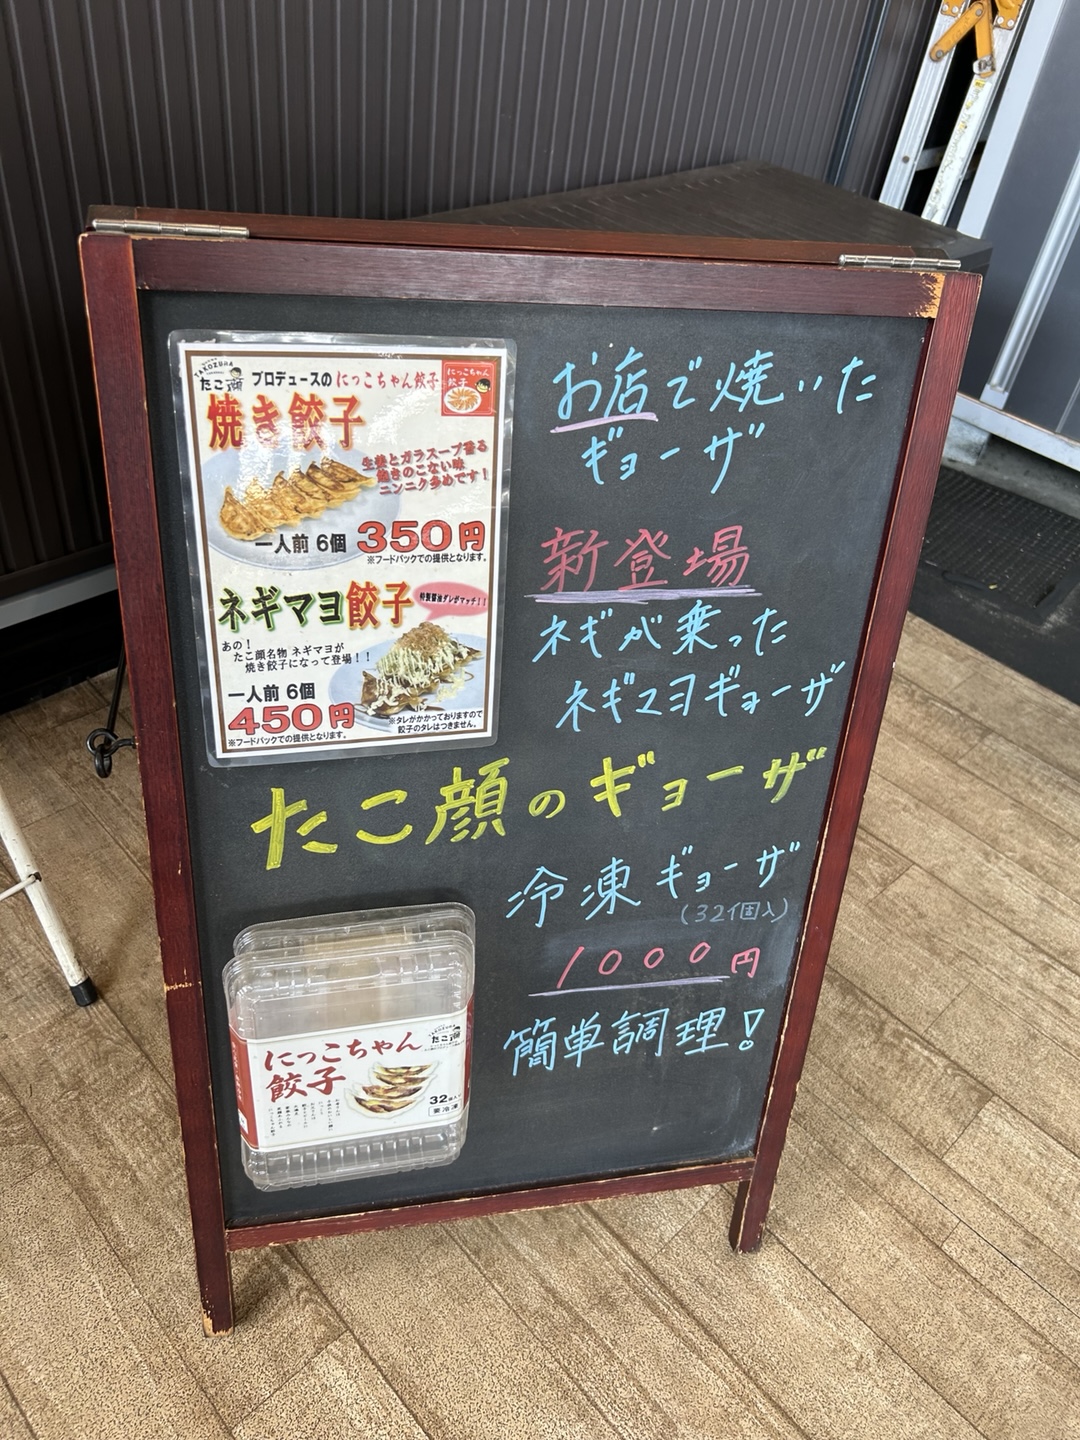 TAKOZURA
たこ顔
プロデュースの にっこちゃん餃子
にっこちゃん
餃子
焼き餃子
生姜とガラスープ香る
飽きのこない味
ニンニク多めです！
一人前 6個 350円
※フードパックでの提供となります。
ネギマヨ餃子
特製醤油ダレがマッチ！！
あの！
たこ顔名物 ネギマヨが
焼き餃子になって登場！！
一人前 6個
450円
※フードパックでの提供となります。
※タレがかかっておりますので
餃子のタレはつきません。
お店で焼いた
ギョーザ
新登場
ネギが乗った
ネギマヨギョーザ
たこ顔のギョーザ
冷凍ギョーザ
(32個入)
1000円
簡単調理！
たこ顔
にっこちゃん
餃子
32個入り
要冷凍